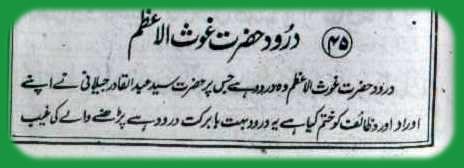 ۴۵ درود حضرت غوث الاعظم
درود حضرت غوث الاعظم وہ درود ہے جس پر حضرت سید عبدالقادر جیلانی نے اپنے
اوراد اور وظائف کو ختم کیا ہے یہ درود بہت بابرکت درود ہے پڑھنے والے کی غیب